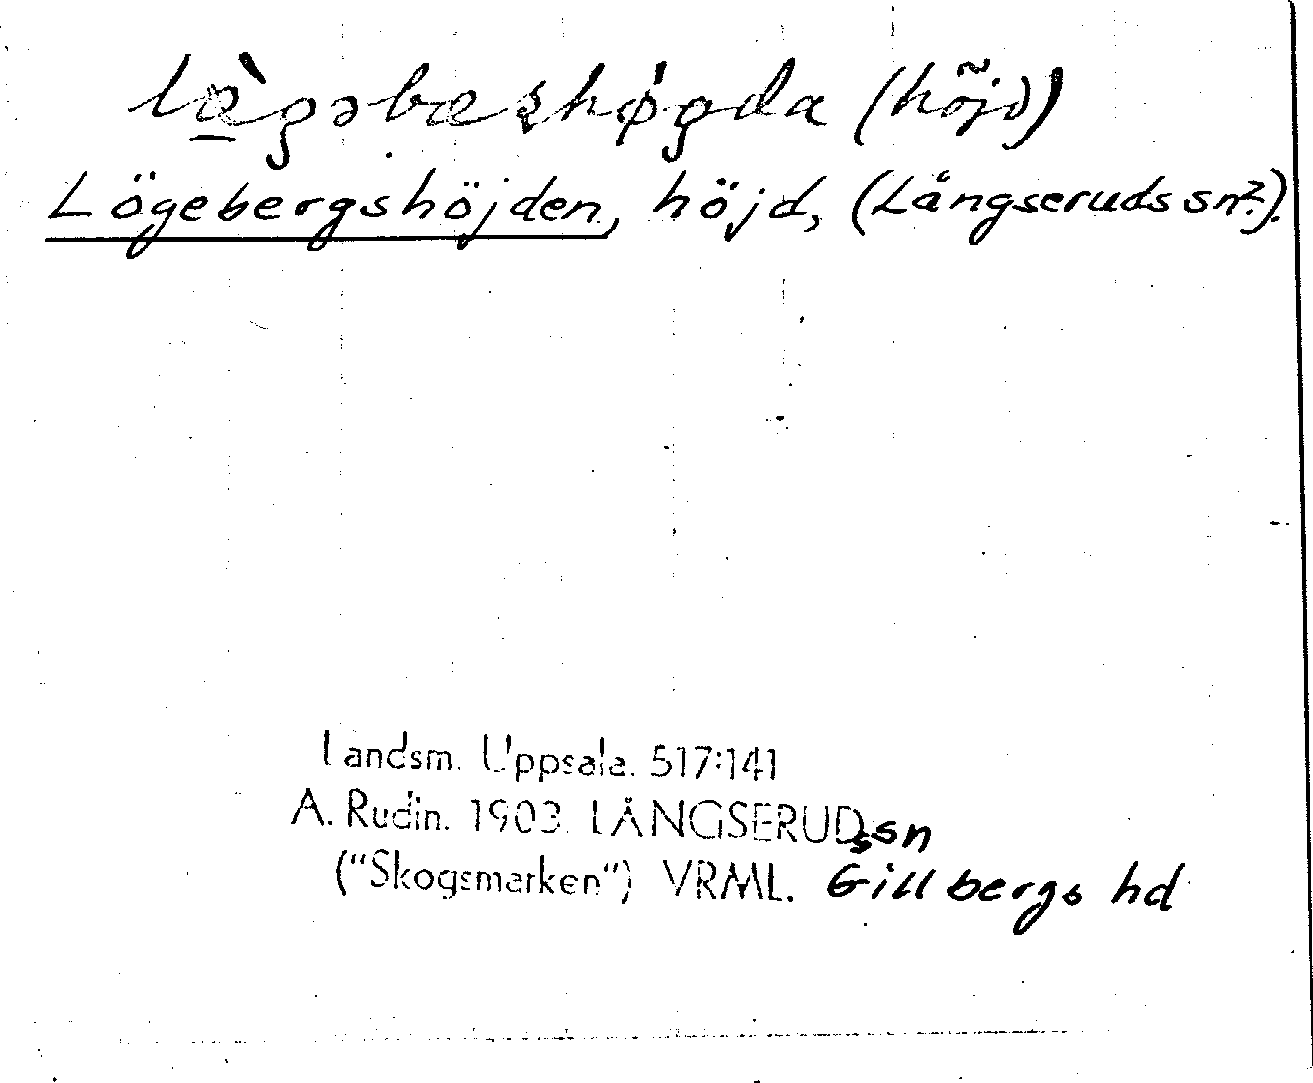 (höjd)
Lögebergshöjden, höjd, (Långseruds sn?).
Landsm. Uppsala. 517:141
A. Rudin. 1903. LÅNGSERUDs sn
("Skogsmarken") VRML. Gillbergs hd